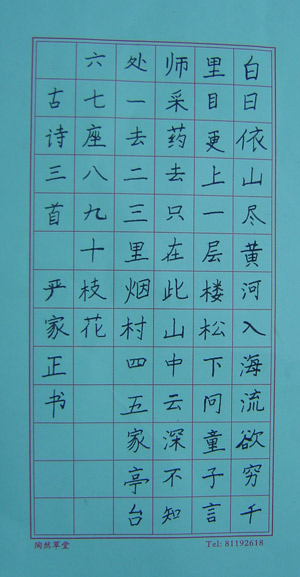 白日依山尽黄河入海流欲穷千
里目更上一层楼松下问童子言
师采药去只在此山中云深不知
处一去二三里烟村四五家亭台
六七座八九十枝花
古诗三首 严家正书
陶然草堂
Tel: 81192618